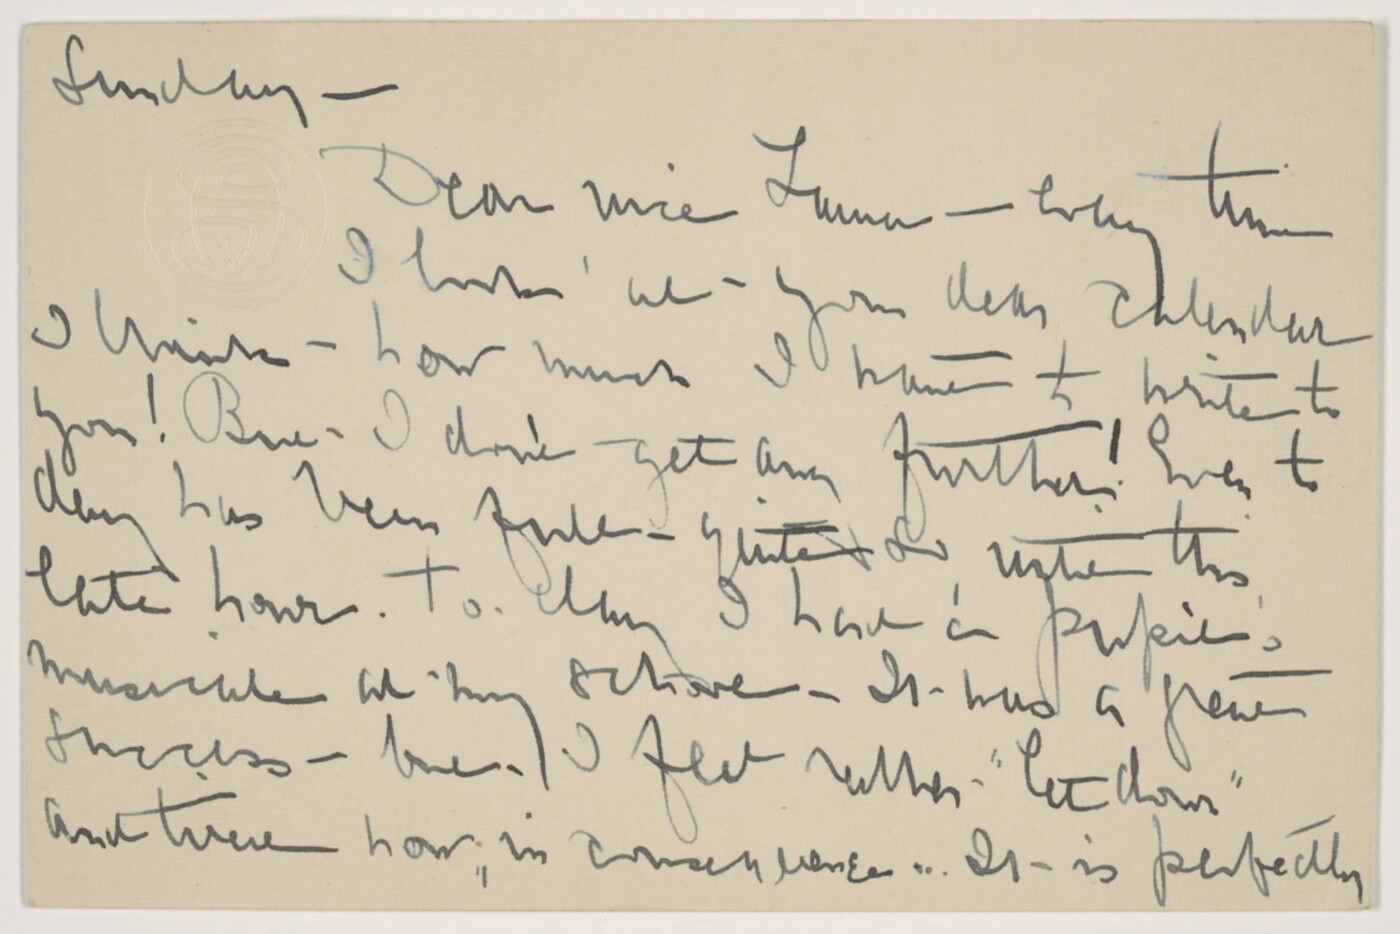 Sunday —
Dear nice — every time
I look at your dear calendar
I think — how much I want to write to
you! But I don't get any further! Even to
day has been full — quite so, until this
late hour. To-day I had a pupil's
musicale at my school — It was a great
success — but I feel rather "let down"
and tired now, "in consequence". It is perfectly